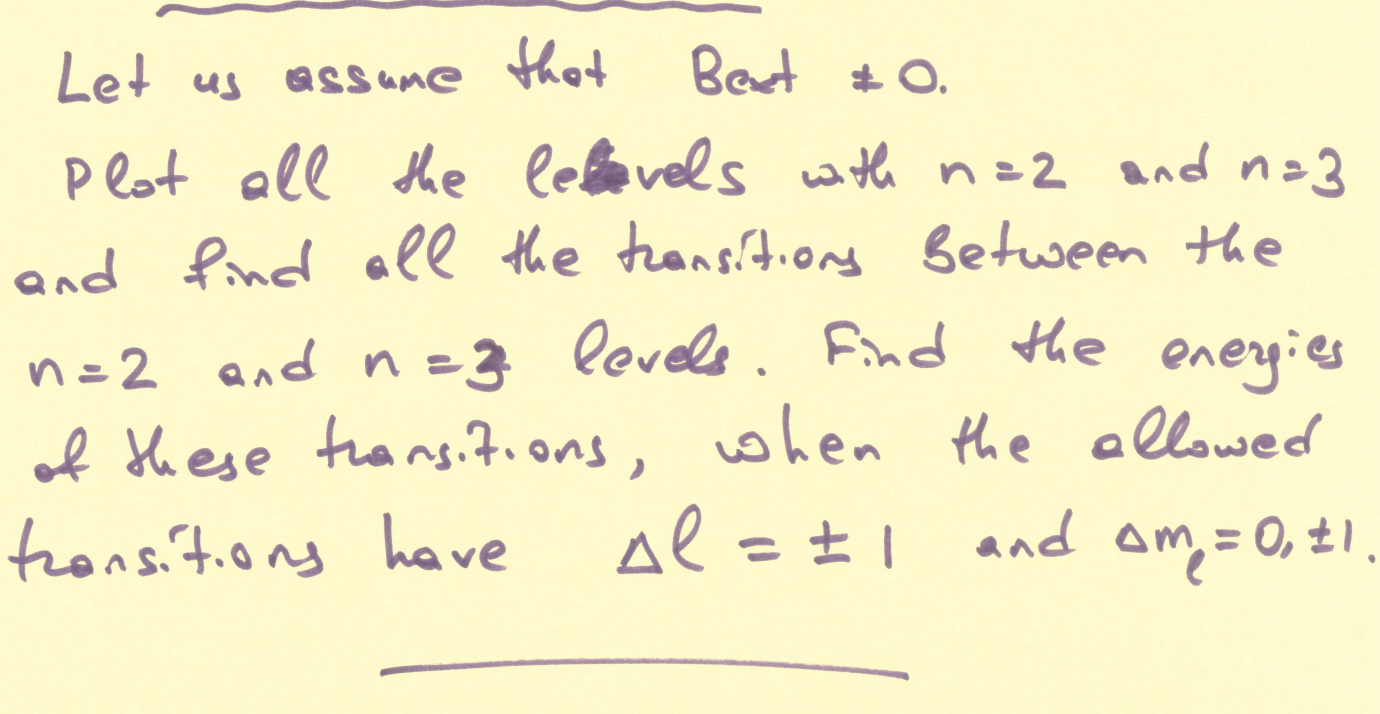 Let us assume that Bext ≠ 0.
Plot all the levels with n=2 and n=3
and find all the transitions between the
n=2 and n=3 levels. Find the energies
of these transitions, when the allowed
transitions have Δl = ±1 and Δm_l=0,±1.